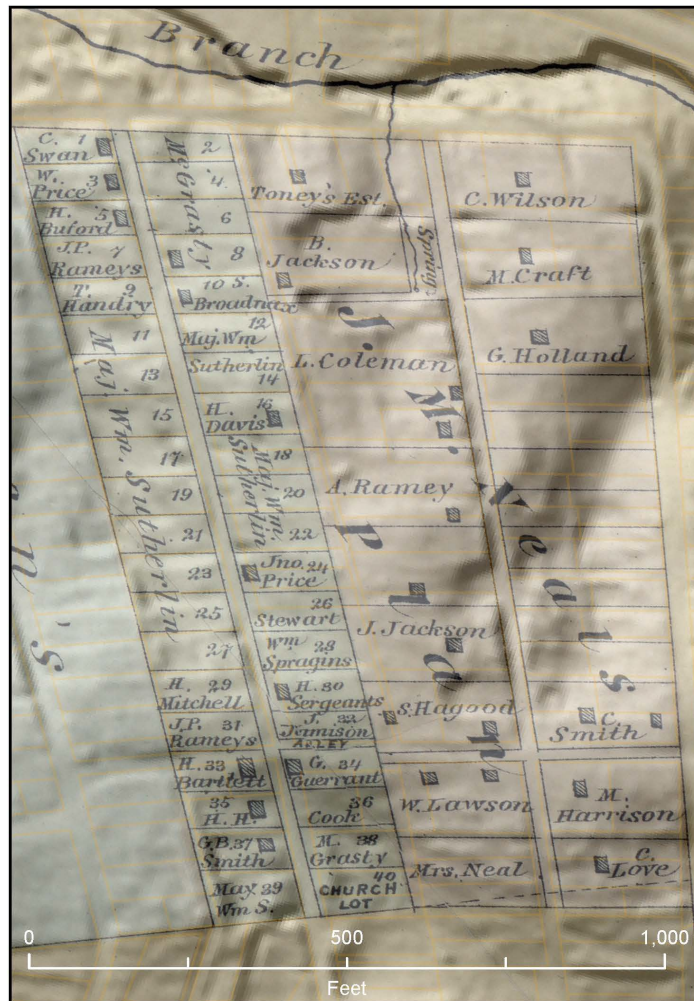 Branch
C. 1
Swan
W.
Price 3
H. 5
Buford
J.P. 7
Rameys
T. 9
Handry
11
13
15
17
19
21
23
25
27
Maj. Wm. Sutherlin
H. 29
Mitchell
J.P. 31
Rameys
H. 33
Bartlett
35
H. H.
G.B. 37
Smith
May. 39
Wm S.
2
4
6
8
McGrasty
10 S.
Broadnax
12
Maj. Wm
Sutherlin
14
H. 16
Davis
18
20
22
Maj. Wm.
Sutherlin
Jno. 24
Price
26
Stewart
Wm 28
Spragins
H. 30
Sergeants
J. 32
Jemison
ALLEY
G. 34
Guerrant
36
Cook
M. 38
Grasty
40
CHURCH
LOT
Toney's Est.
B.
Jackson
Spring
L. Coleman
A. Ramey
J. Jackson
S. Hagood
W. Lawson
Mrs. Neal
C. Wilson
M. Craft
G. Holland
C.
Smith
M.
Harrison
C.
Love
J. M. Veal's
Plan
n's
0 500 1,000
Feet